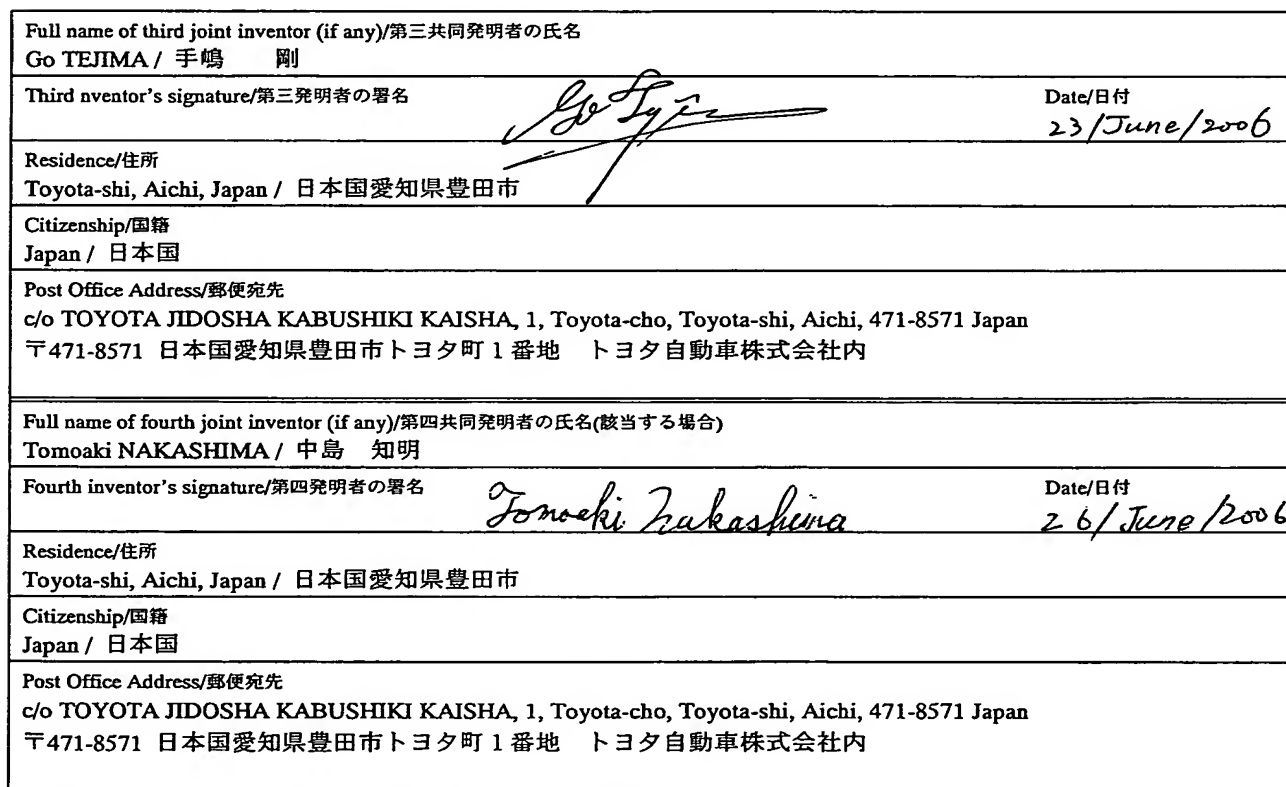 Full name of third joint inventor (if any)/第三共同発明者の氏名
Go TEJIMA / 手嶋　　剛
Third nventor's signature/第三発明者の署名 Date/日付
23/June/2006
Residence/住所
Toyota-shi, Aichi, Japan / 日本国愛知県豊田市
Citizenship/国籍
Japan / 日本国
Post Office Address/郵便宛先
c/o TOYOTA JIDOSHA KABUSHIKI KAISHA, 1, Toyota-cho, Toyota-shi, Aichi, 471-8571 Japan
〒471-8571 日本国愛知県豊田市トヨタ町1番地　トヨタ自動車株式会社内
Full name of fourth joint inventor (if any)/第四共同発明者の氏名(該当する場合)
Tomoaki NAKASHIMA / 中島　知明
Fourth inventor's signature/第四発明者の署名 Tomoaki Nakashima Date/日付
26/June/2006
Residence/住所
Toyota-shi, Aichi, Japan / 日本国愛知県豊田市
Citizenship/国籍
Japan / 日本国
Post Office Address/郵便宛先
c/o TOYOTA JIDOSHA KABUSHIKI KAISHA, 1, Toyota-cho, Toyota-shi, Aichi, 471-8571 Japan
〒471-8571 日本国愛知県豊田市トヨタ町1番地　トヨタ自動車株式会社内